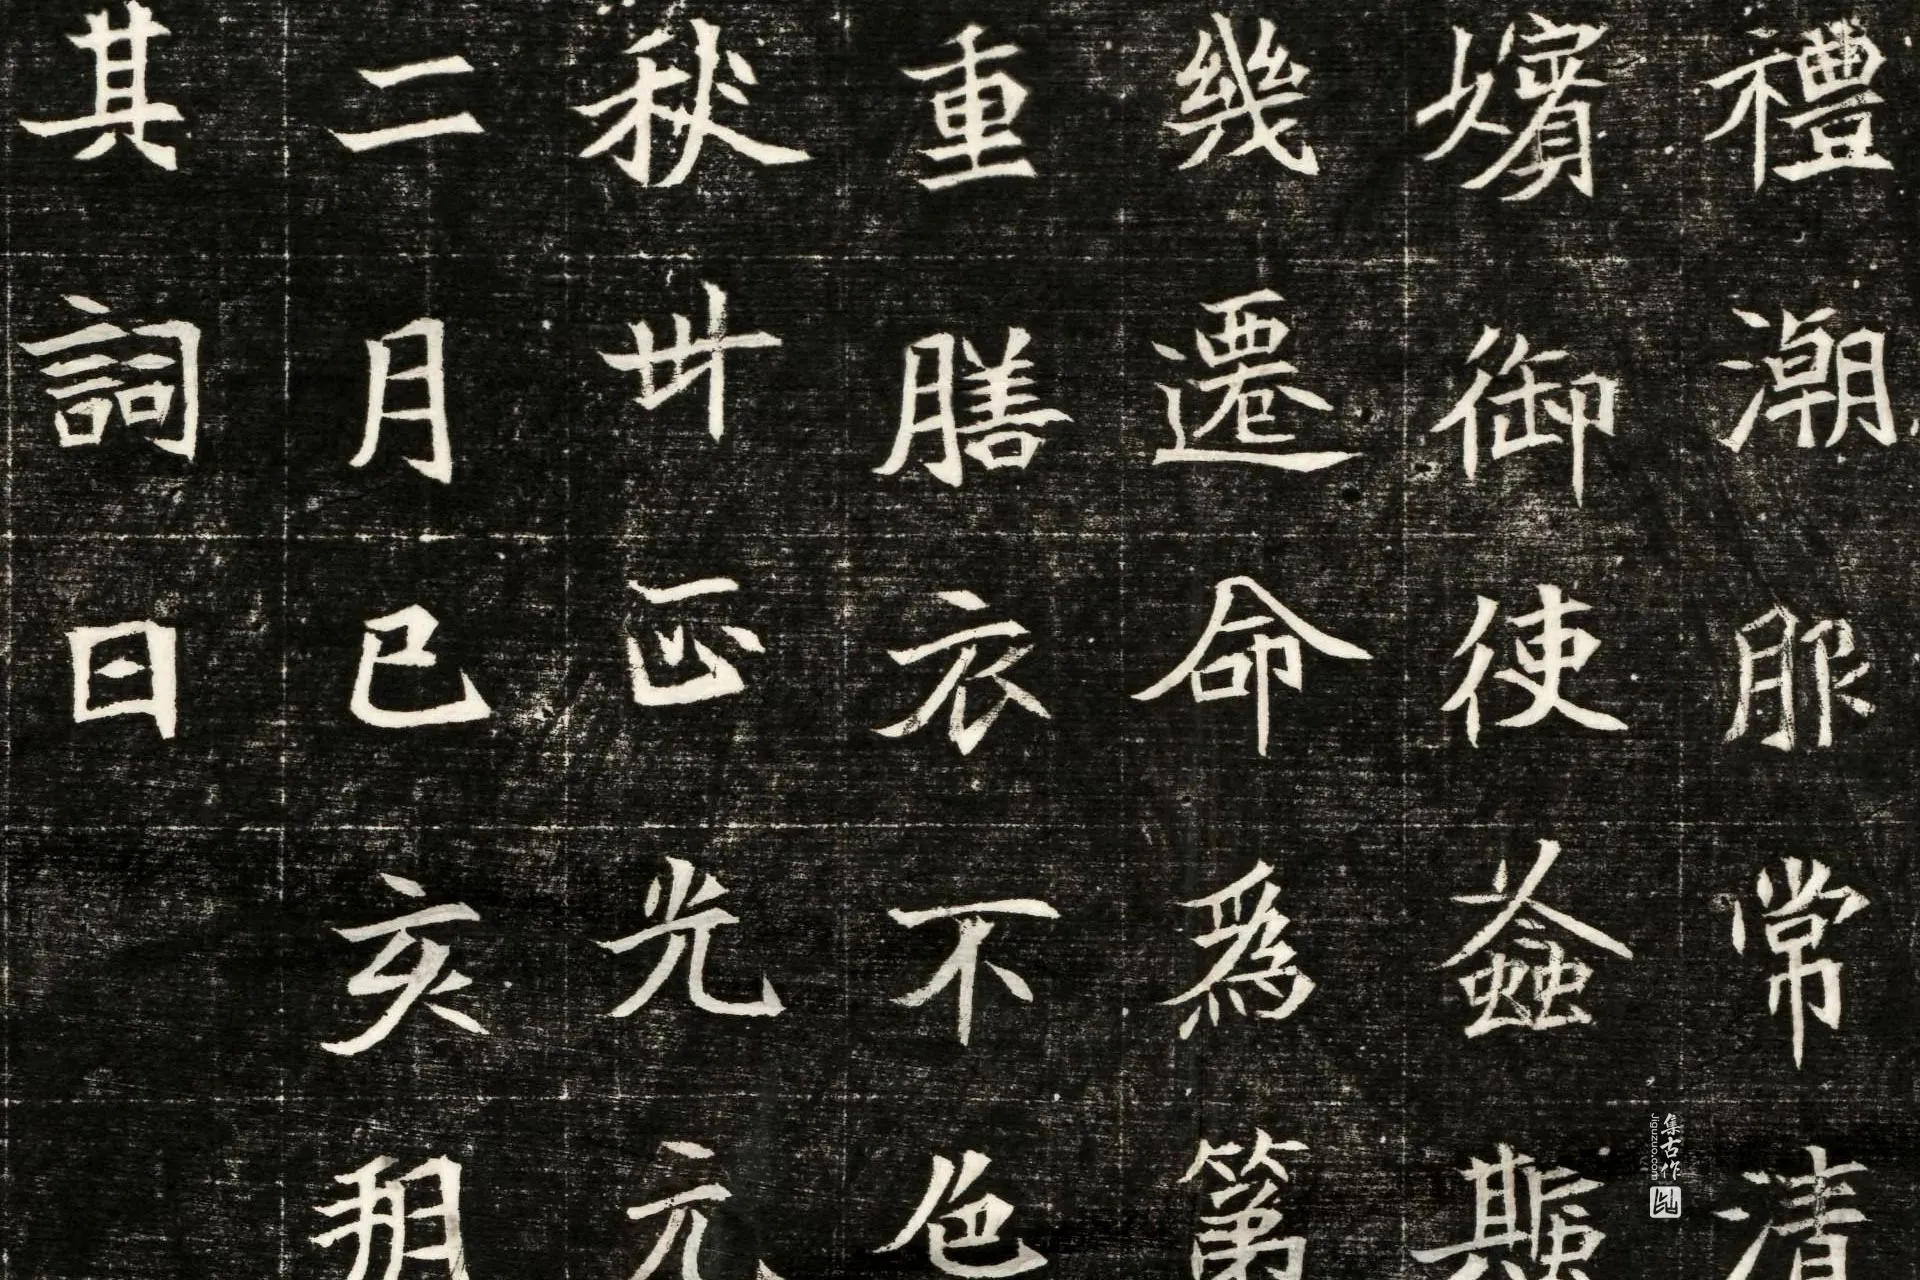 禮潮服常清
嬪御使螽斯
幾遷命為第
重膳衣不色
秋卅正光元
二月己亥朔
其詞曰
集古作
jiguzuo.com